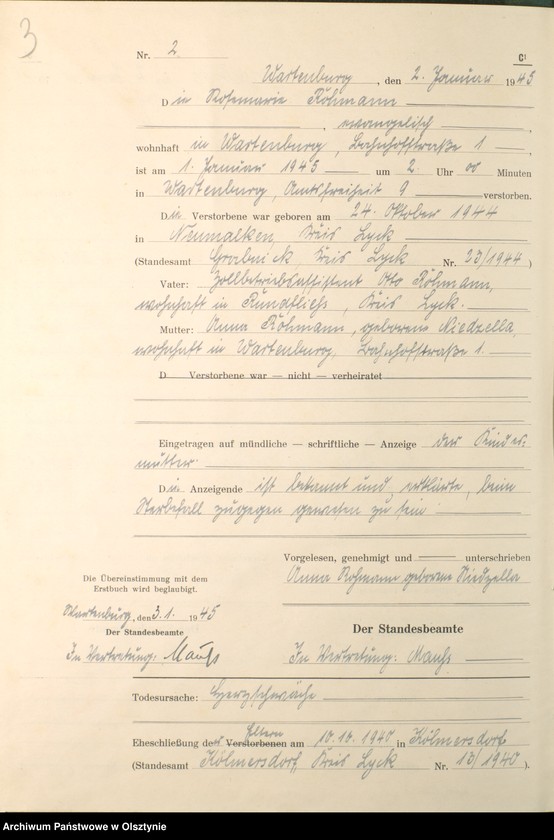 3
Nr. 2
C¹
Wartenburg, den 2. Januar 1945
Die Rosemarie Röhmann
, evangelisch
wohnhaft in Wartenburg, Bahnhofstraße 1
ist am 1. Januar 1945 um 2 Uhr 00 Minuten
in Wartenburg, Amtsfreiheit 9 verstorben.
Die Verstorbene war geboren am 24. Oktober 1944
in Neumalken, Kreis Lyck
(Standesamt Grabnick, Kreis Lyck Nr. 23/1944)
Vater: Zollbetriebsassistent Otto Röhmann,
wohnhaft in Rundfließ, Kreis Lyck.
Mutter: Anna Röhmann, geborene Niedzella,
wohnhaft in Wartenburg, Bahnhofstraße 1.
D Verstorbene war — nicht — verheiratet
Eingetragen auf mündliche — schriftliche — Anzeige der Kindes-
mutter.
Die Anzeigende ist bekannt und erklärte, beim
Sterbefall zugegen gewesen zu sein.
Vorgelesen, genehmigt und unterschrieben
Anna Röhmann geborene Niedzella
Die Übereinstimmung mit dem
Erstbuch wird beglaubigt.
Wartenburg, den 3.1. 1945
Der Standesbeamte
In Vertretung:
Der Standesbeamte
In Vertretung:
Todesursache: Herzschwäche
Eltern
Eheschließung der Verstorbenen am 10.10.1940 in Kölmersdorf
(Standesamt Kölmersdorf, Kreis Lyck Nr. 13/1940).
Archiwum Państwowe w Olsztynie